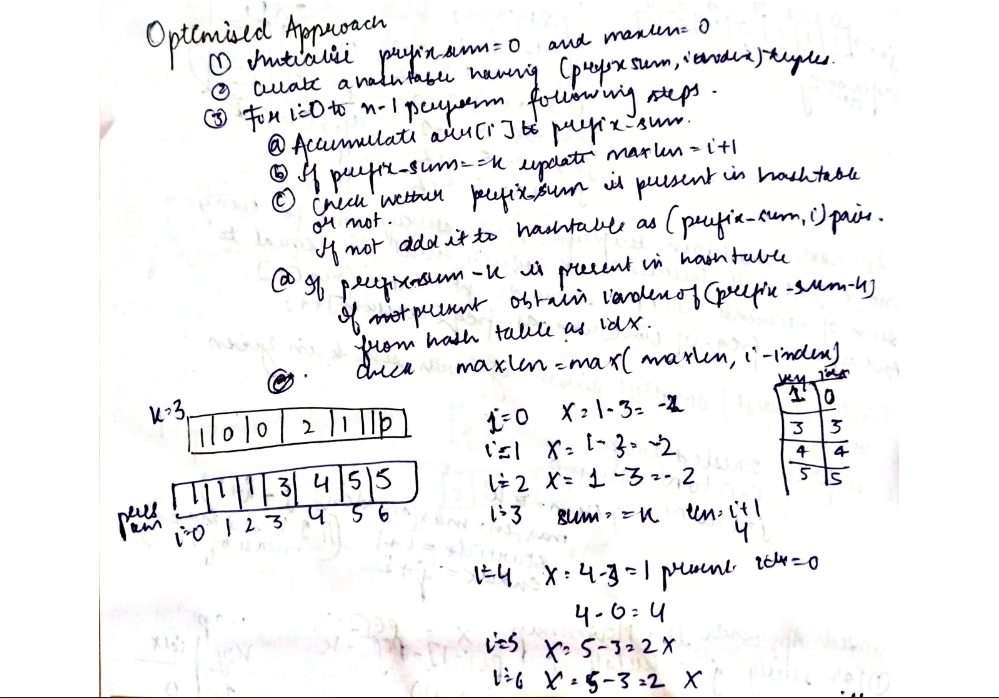 Optimised Approach
① Initialise prefix-sum=0 and maxlen=0
② Create a hashtable having (prefix sum, index) tuples.
③ For i=0 to n-1 perform following steps.
ⓐ Accumulate arr[i] to prefix-sum.
ⓑ If prefix-sum==k update maxlen=i+1
ⓒ Check wether prefix-sum is present in hashtable
or not.
If not add it to hashtable as (prefix-sum, i) pair.
ⓓ If prefix-sum-k is present in hashtable
If present obtain index of (prefix-sum-k)
from hash table as idx.
maxlen=max(maxlen, i-index)
k=3,
1 | 0 | 0 | 2 | 1 | 1 | 0
1 | 1 | 1 | 3 | 4 | 5 | 5
i=0 1 2 3 4 5 6
i=0 X=1-3=-2
i=1 X=1-3=-2
i=2 X=1-3=-2
i=3 sum==k len=i+1
4
i=4 X=4-3=1 present idx=0
4-0=4
i=5, X=5-3=2 X
i=6 X=5-3=2 X
key idx
1 0
3 3
4 4
5 5